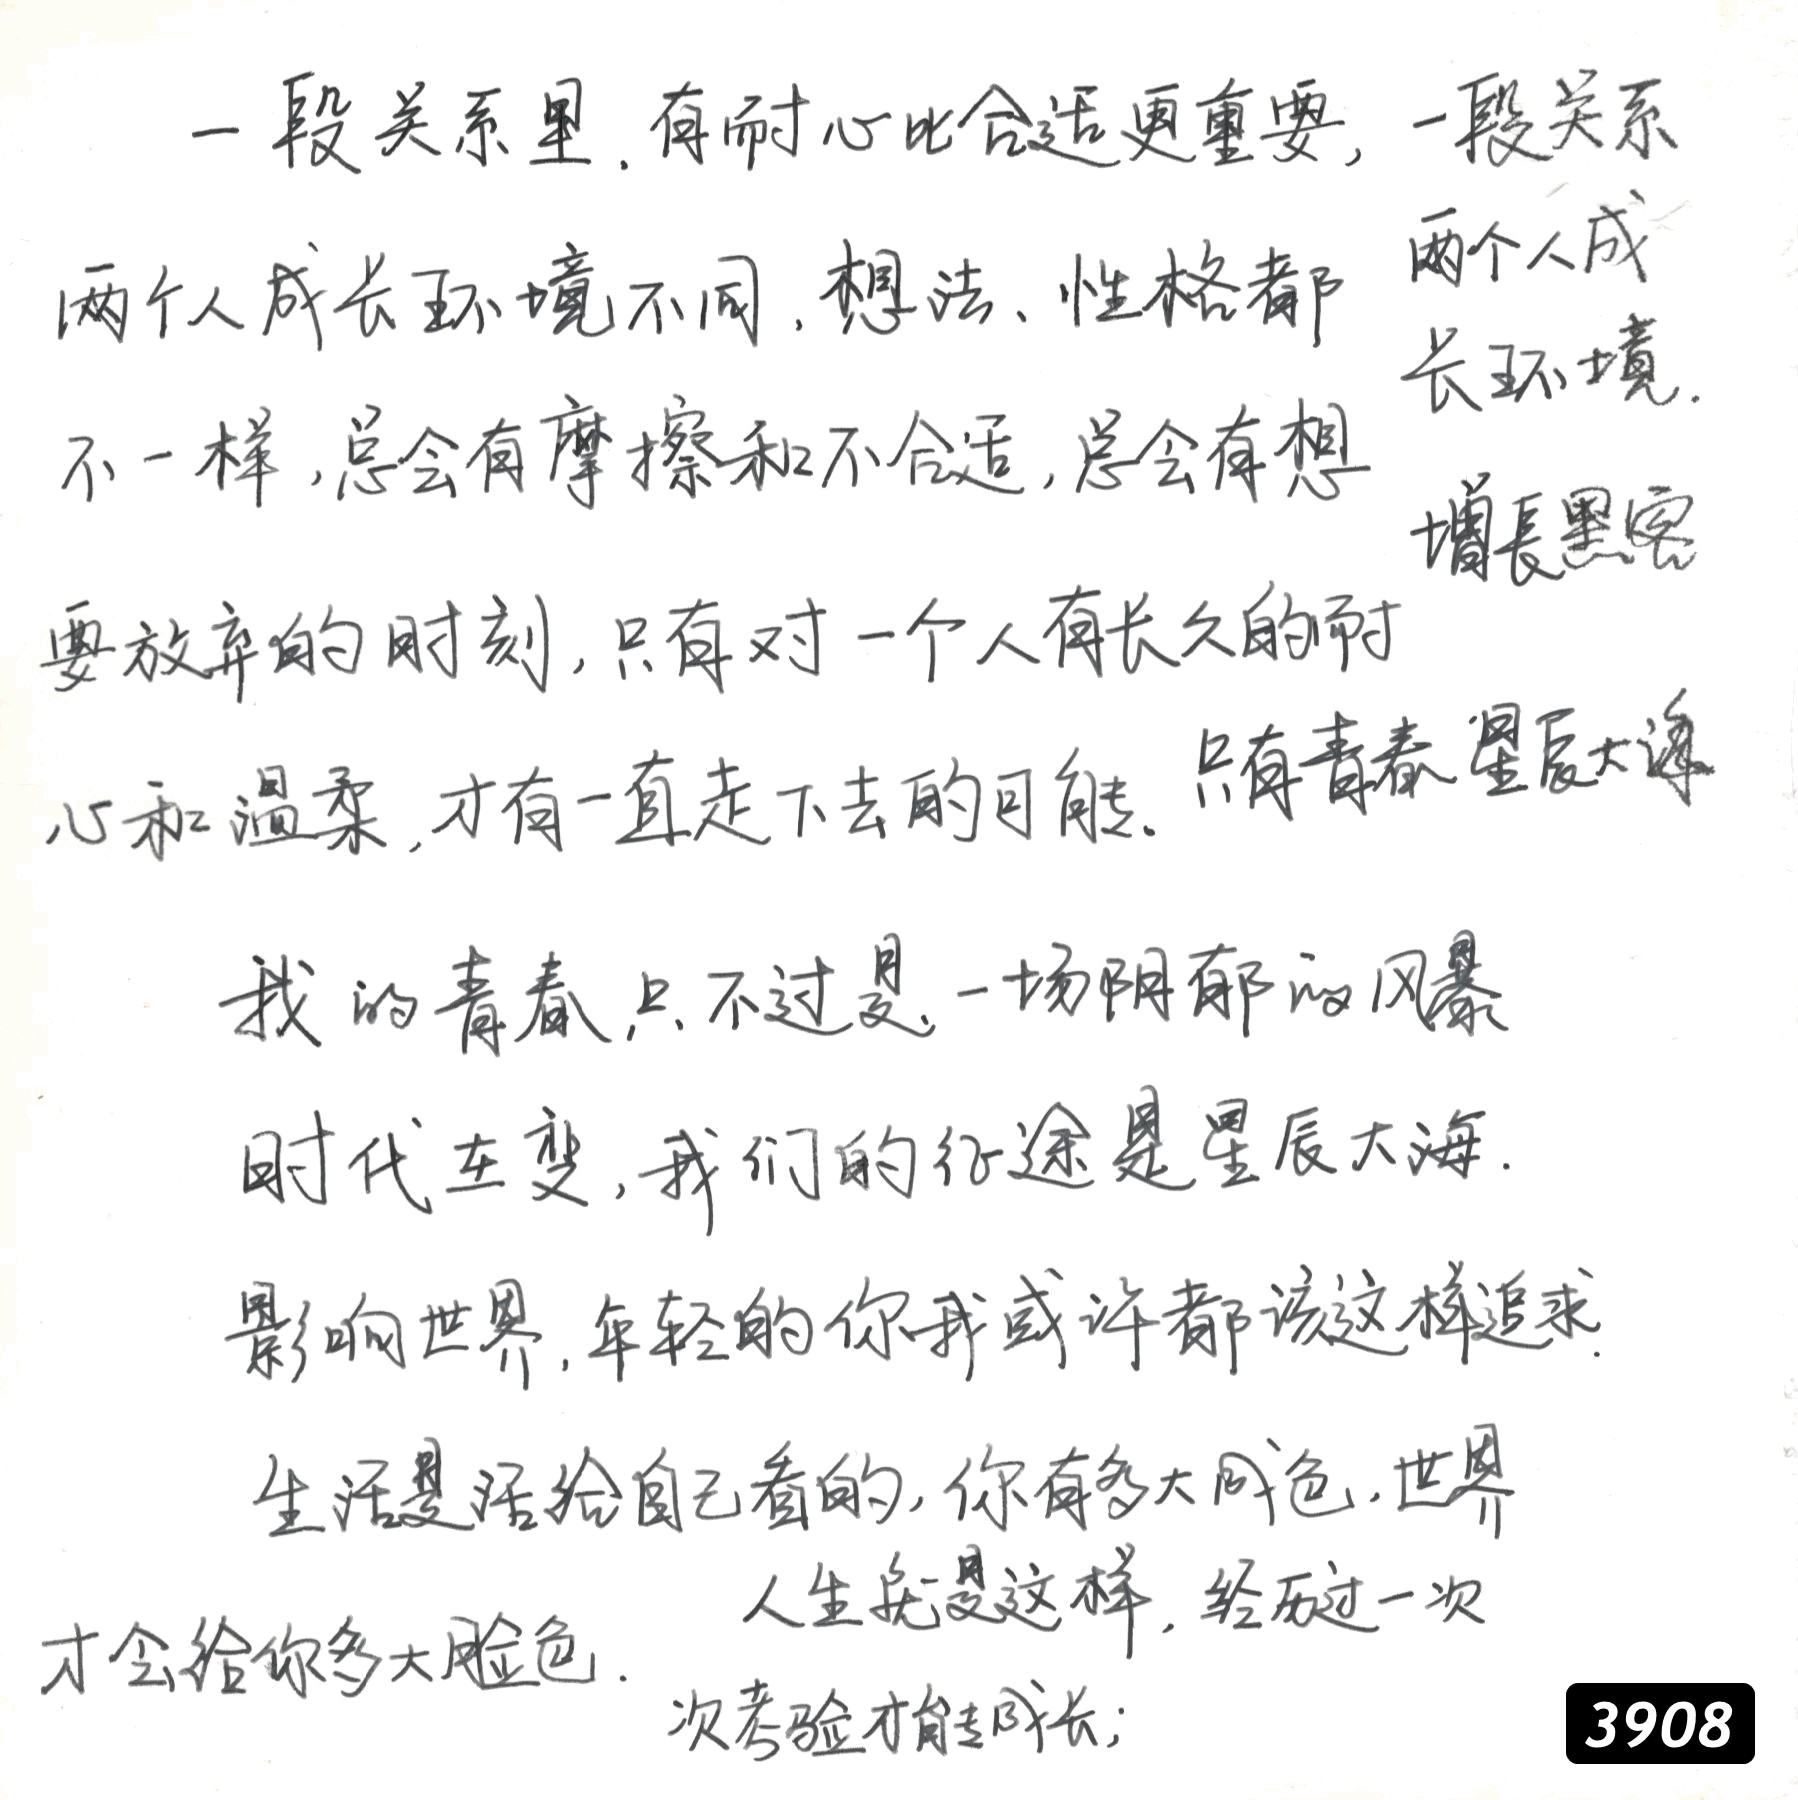 一段关系里，有耐心比合适更重要，一段关系
两个人成长环境不同，想法、性格都
两个人成
长环境.
不一样，总会有摩擦和不合适，总会有想
增長黑客
要放弃的时刻，只有对一个人有长久的耐
心和温柔，才有一直走下去的可能.
只有青春星辰大海
我的青春，只不过是一场阴郁的风暴
时代在变，我们的征途是星辰大海.
影响世界，年轻的你我或许都该这样追求.
生活是活给自己看的，你有多大成色，世界
才会给你多大脸色.
人生就是这样，经历过一次
次考验才能成长；
3908